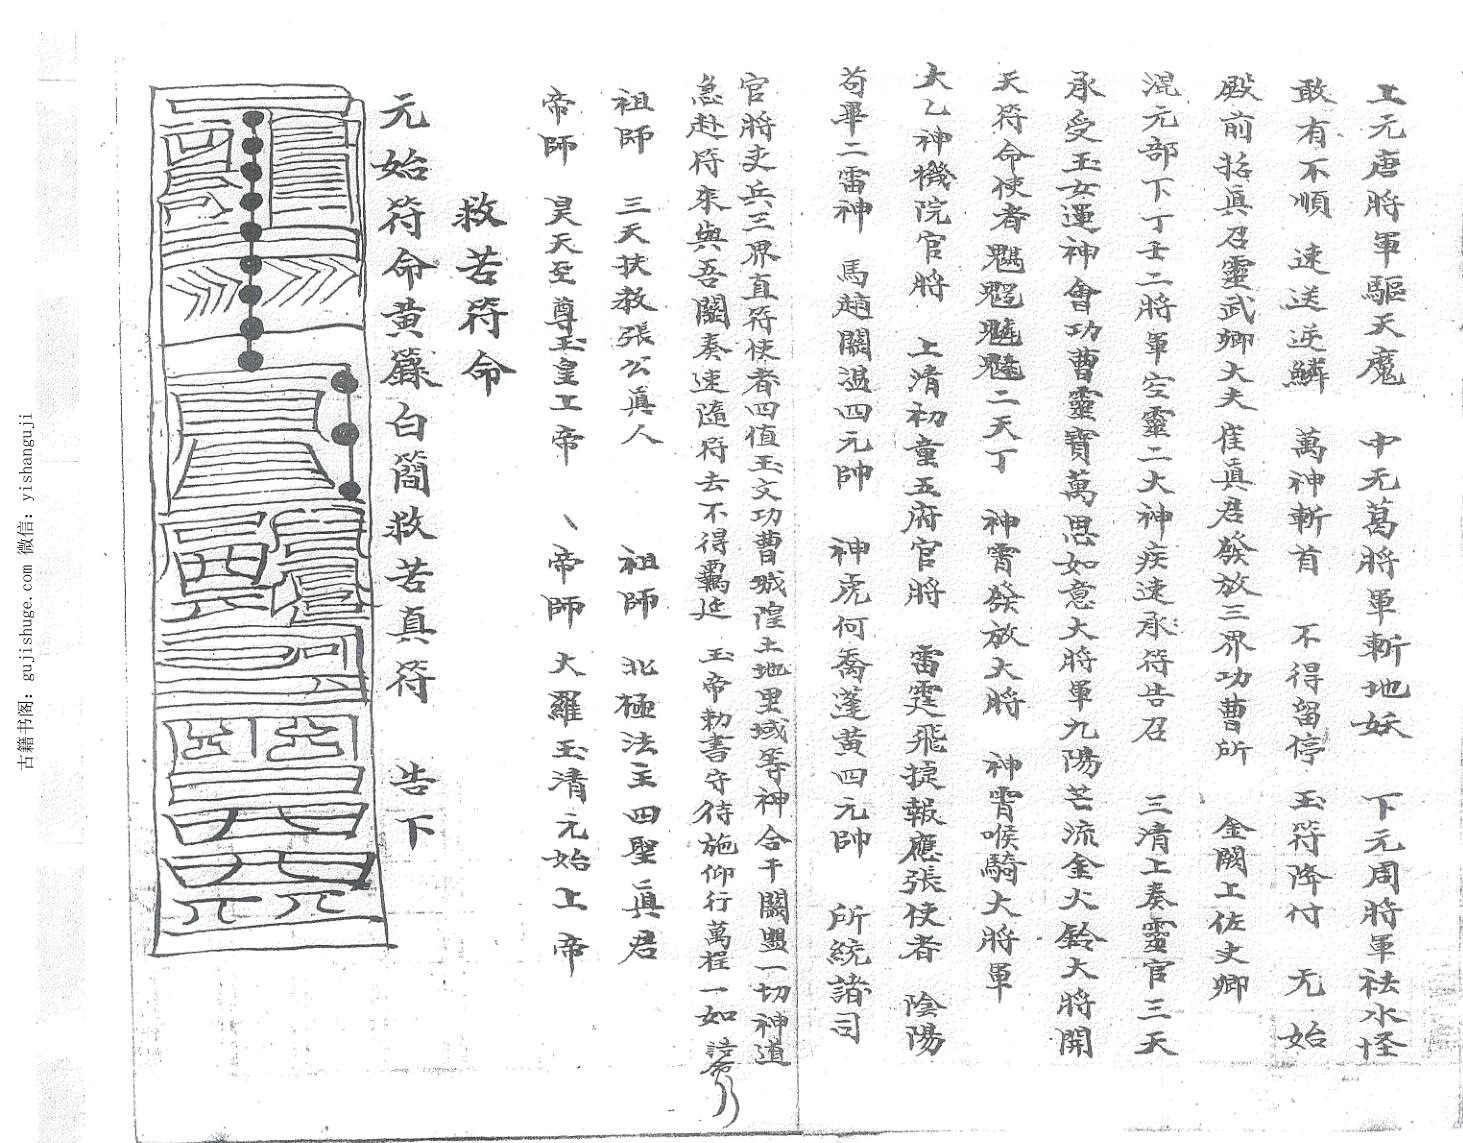 上元唐將軍驅天魔　中元葛將軍斬地妖　下元周將軍祛水怪
敢有不順　速送逆鱗　萬神斬首　不得留停　玉符降付　元始
殿前招真召靈武卿大夫崔真君發放三界功曹所　金闕上佐史卿
混元部下丁壬二將軍空靈二大神疾速承符告召　三清上奏靈官三天
承受玉女運神會功曹靈寶萬思如意大將軍九陽芒流金火鈴大將開
天符命使者二天丁　神霄發放大將　神霄喉騎大將軍
大乙神機院官將　上清初童五府官將　雷霆飛捷報應張使者　陰陽
苟畢二雷神　馬趙關温四元帥　神虎何喬蓬黃四元帥　所統諸司
官將吏兵三界直符使者四值玉文功曹城隍土地里域等神合干關盟一切神道
急赴符來與吾關奏速隨符去不得羈延　玉帝勅書守待施仰行萬程一如誥命
祖師　三天扶教張公真人　祖師　北極法主四聖真君
帝師　昊天至尊玉皇上帝　帝師　大羅玉清元始上帝
救苦符命
元始符命黃籙白簡救苦真符　告下
古籍书阁：gujishuge.com 微信：yishanguji